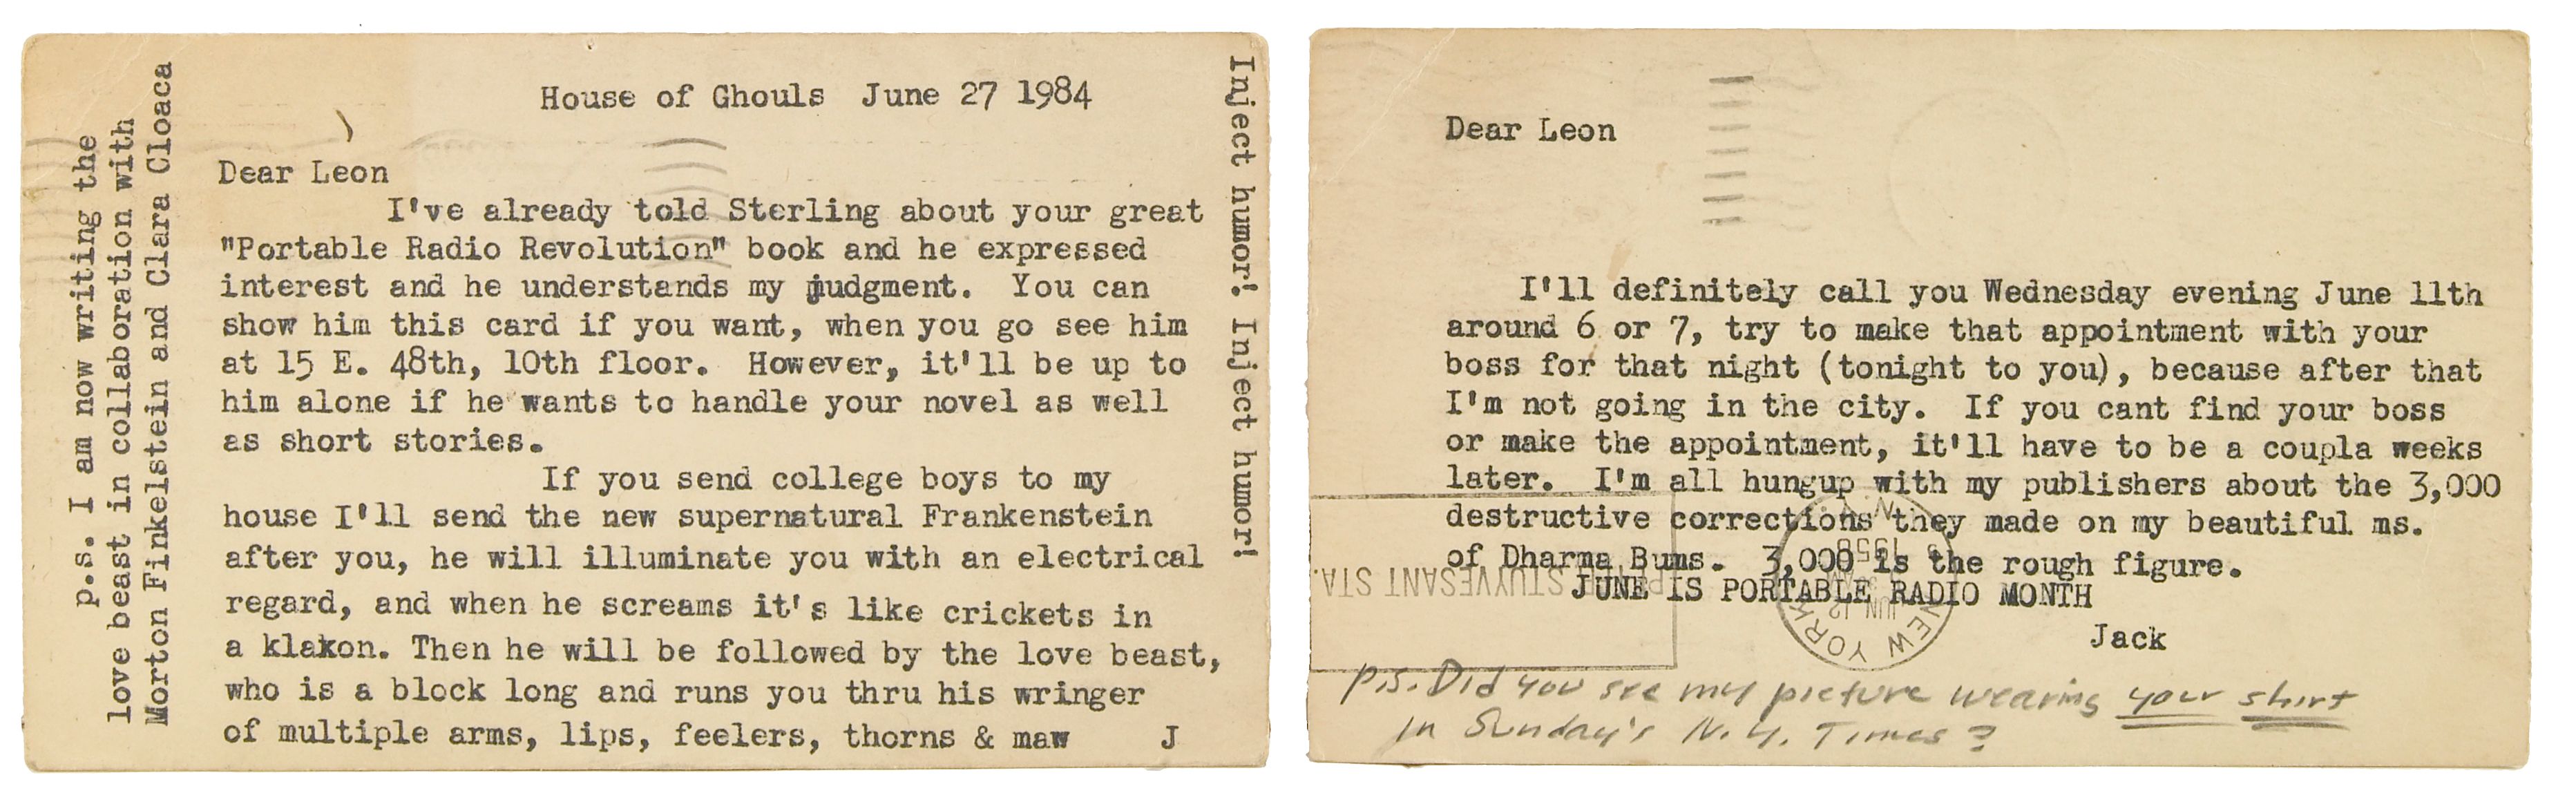 House of Ghouls  June 27 1984
Dear Leon
I've already told Sterling about your great
"Portable Radio Revolution" book and he expressed
interest and he understands my judgment.  You can
show him this card if you want, when you go see him
at 15 E. 48th, 10th floor.  However, it'll be up to
him alone if he wants to handle your novel as well
as short stories.
If you send college boys to my
house I'll send the new supernatural Frankenstein
after you, he will illuminate you with an electrical
regard, and when he screams it's like crickets in
a klaxon. Then he will be followed by the love beast,
who is a block long and runs you thru his wringer
of multiple arms, lips, feelers, thorns & maw     J
p.s. I am now writing the
love beast in collaboration with
Morton Finkelstein and Clara Cloaca
Inject humor! Inject humor!
Dear Leon
I'll definitely call you Wednesday evening June 11th
around 6 or 7, try to make that appointment with your
boss for that night (tonight to you), because after that
I'm not going in the city.  If you cant find your boss
or make the appointment, it'll have to be a coupla weeks
later.  I'm all hungup with my publishers about the 3,000
destructive corrections they made on my beautiful ms.
of Dharma Bums.  3,000 is the rough figure.
JUNE IS PORTABLE RADIO MONTH
Jack
p.s. Did you see my picture wearing your shirt
in Sunday's N.Y. Times?
STUYVESANT STA.
NEW YORK
N.Y.
JUN 12
1958